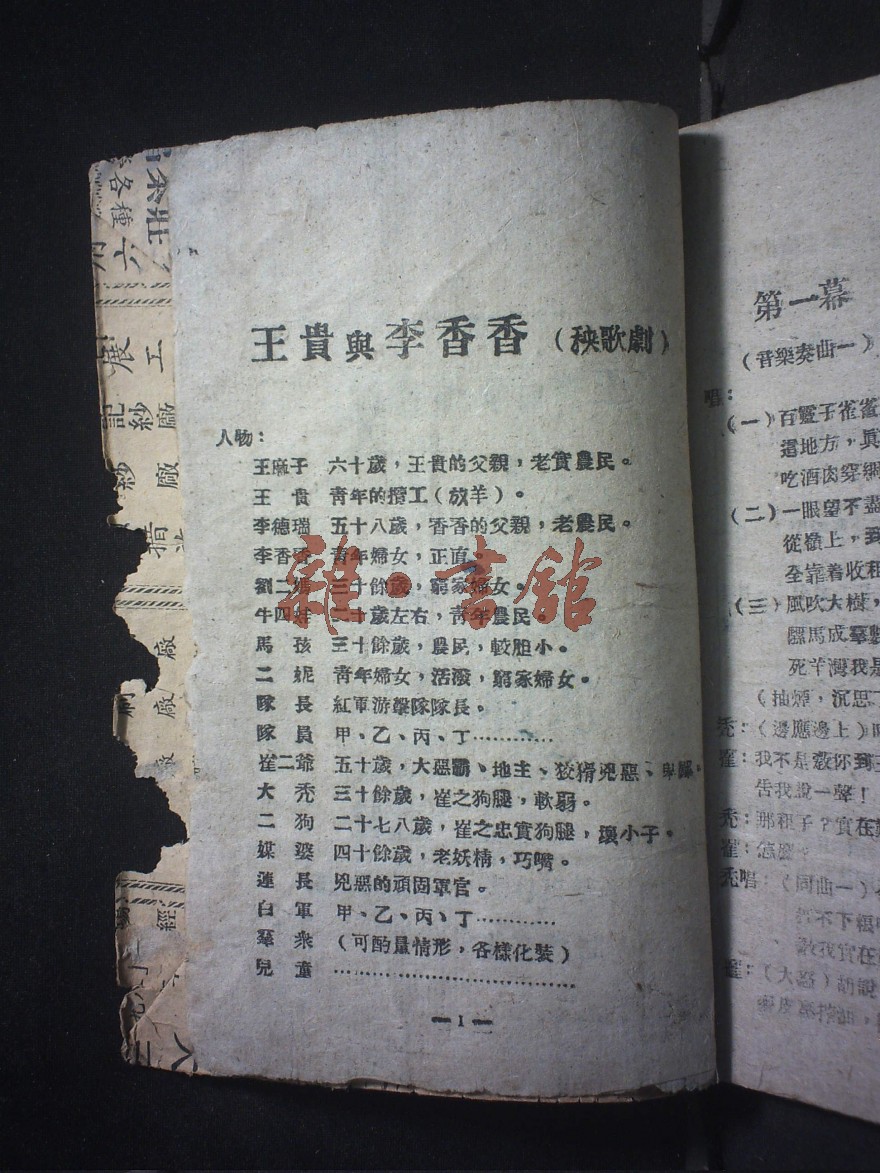 王貴與李香香（秧歌劇）
人物：
王麻子 六十歲，王貴的父親，老實農民。
王 貴 靑年的攬工（放羊）。
李德瑞 五十八歲，香香的父親，老農民。
李香香 靑年婦女，正直。
劉二媽 三十餘歲，窮家婦女。
牛四娃 二十歲左右，靑年農民。
馬 孩 三十餘歲，農民，較胆小。
二 妮 靑年婦女，活潑，窮家婦女。
隊 長 紅軍游擊隊隊長。
隊 員 甲、乙、丙、丁…………
崔二爺 五十歲，大惡霸、地主、狡猾兇惡、卑鄙。
大 禿 三十餘歲，崔之狗腿，軟弱。
二 狗 二十七八歲，崔之忠實狗腿，壞小子。
媒 婆 四十餘歲，老妖精，巧嘴。
連 長 兇惡的頑固軍官。
白 軍 甲、乙、丙、丁…………
羣 衆 （可酌量情形，各樣化裝）
兒 童 …………………………
—1—
雜·書館
第一幕
（音樂奏曲一）
唱：
（一）百靈子雀雀
這地方，眞
吃酒肉穿綢
（二）一眼望不盡
從嶺上，到
全靠着收租
（三）風吹大樹，
騾馬成羣
死羊灣我是
（抽煙，沉思
禿：（邊應邊上）
崔：我不是敎你到
告我說一聲！
禿：那租子？實在
崔：怎麼。
禿唱：（同曲一）
敎我實在
崔：（大怒）胡說
各種
六
展
工
記紗廠
紗廠
措
廠
廠
經